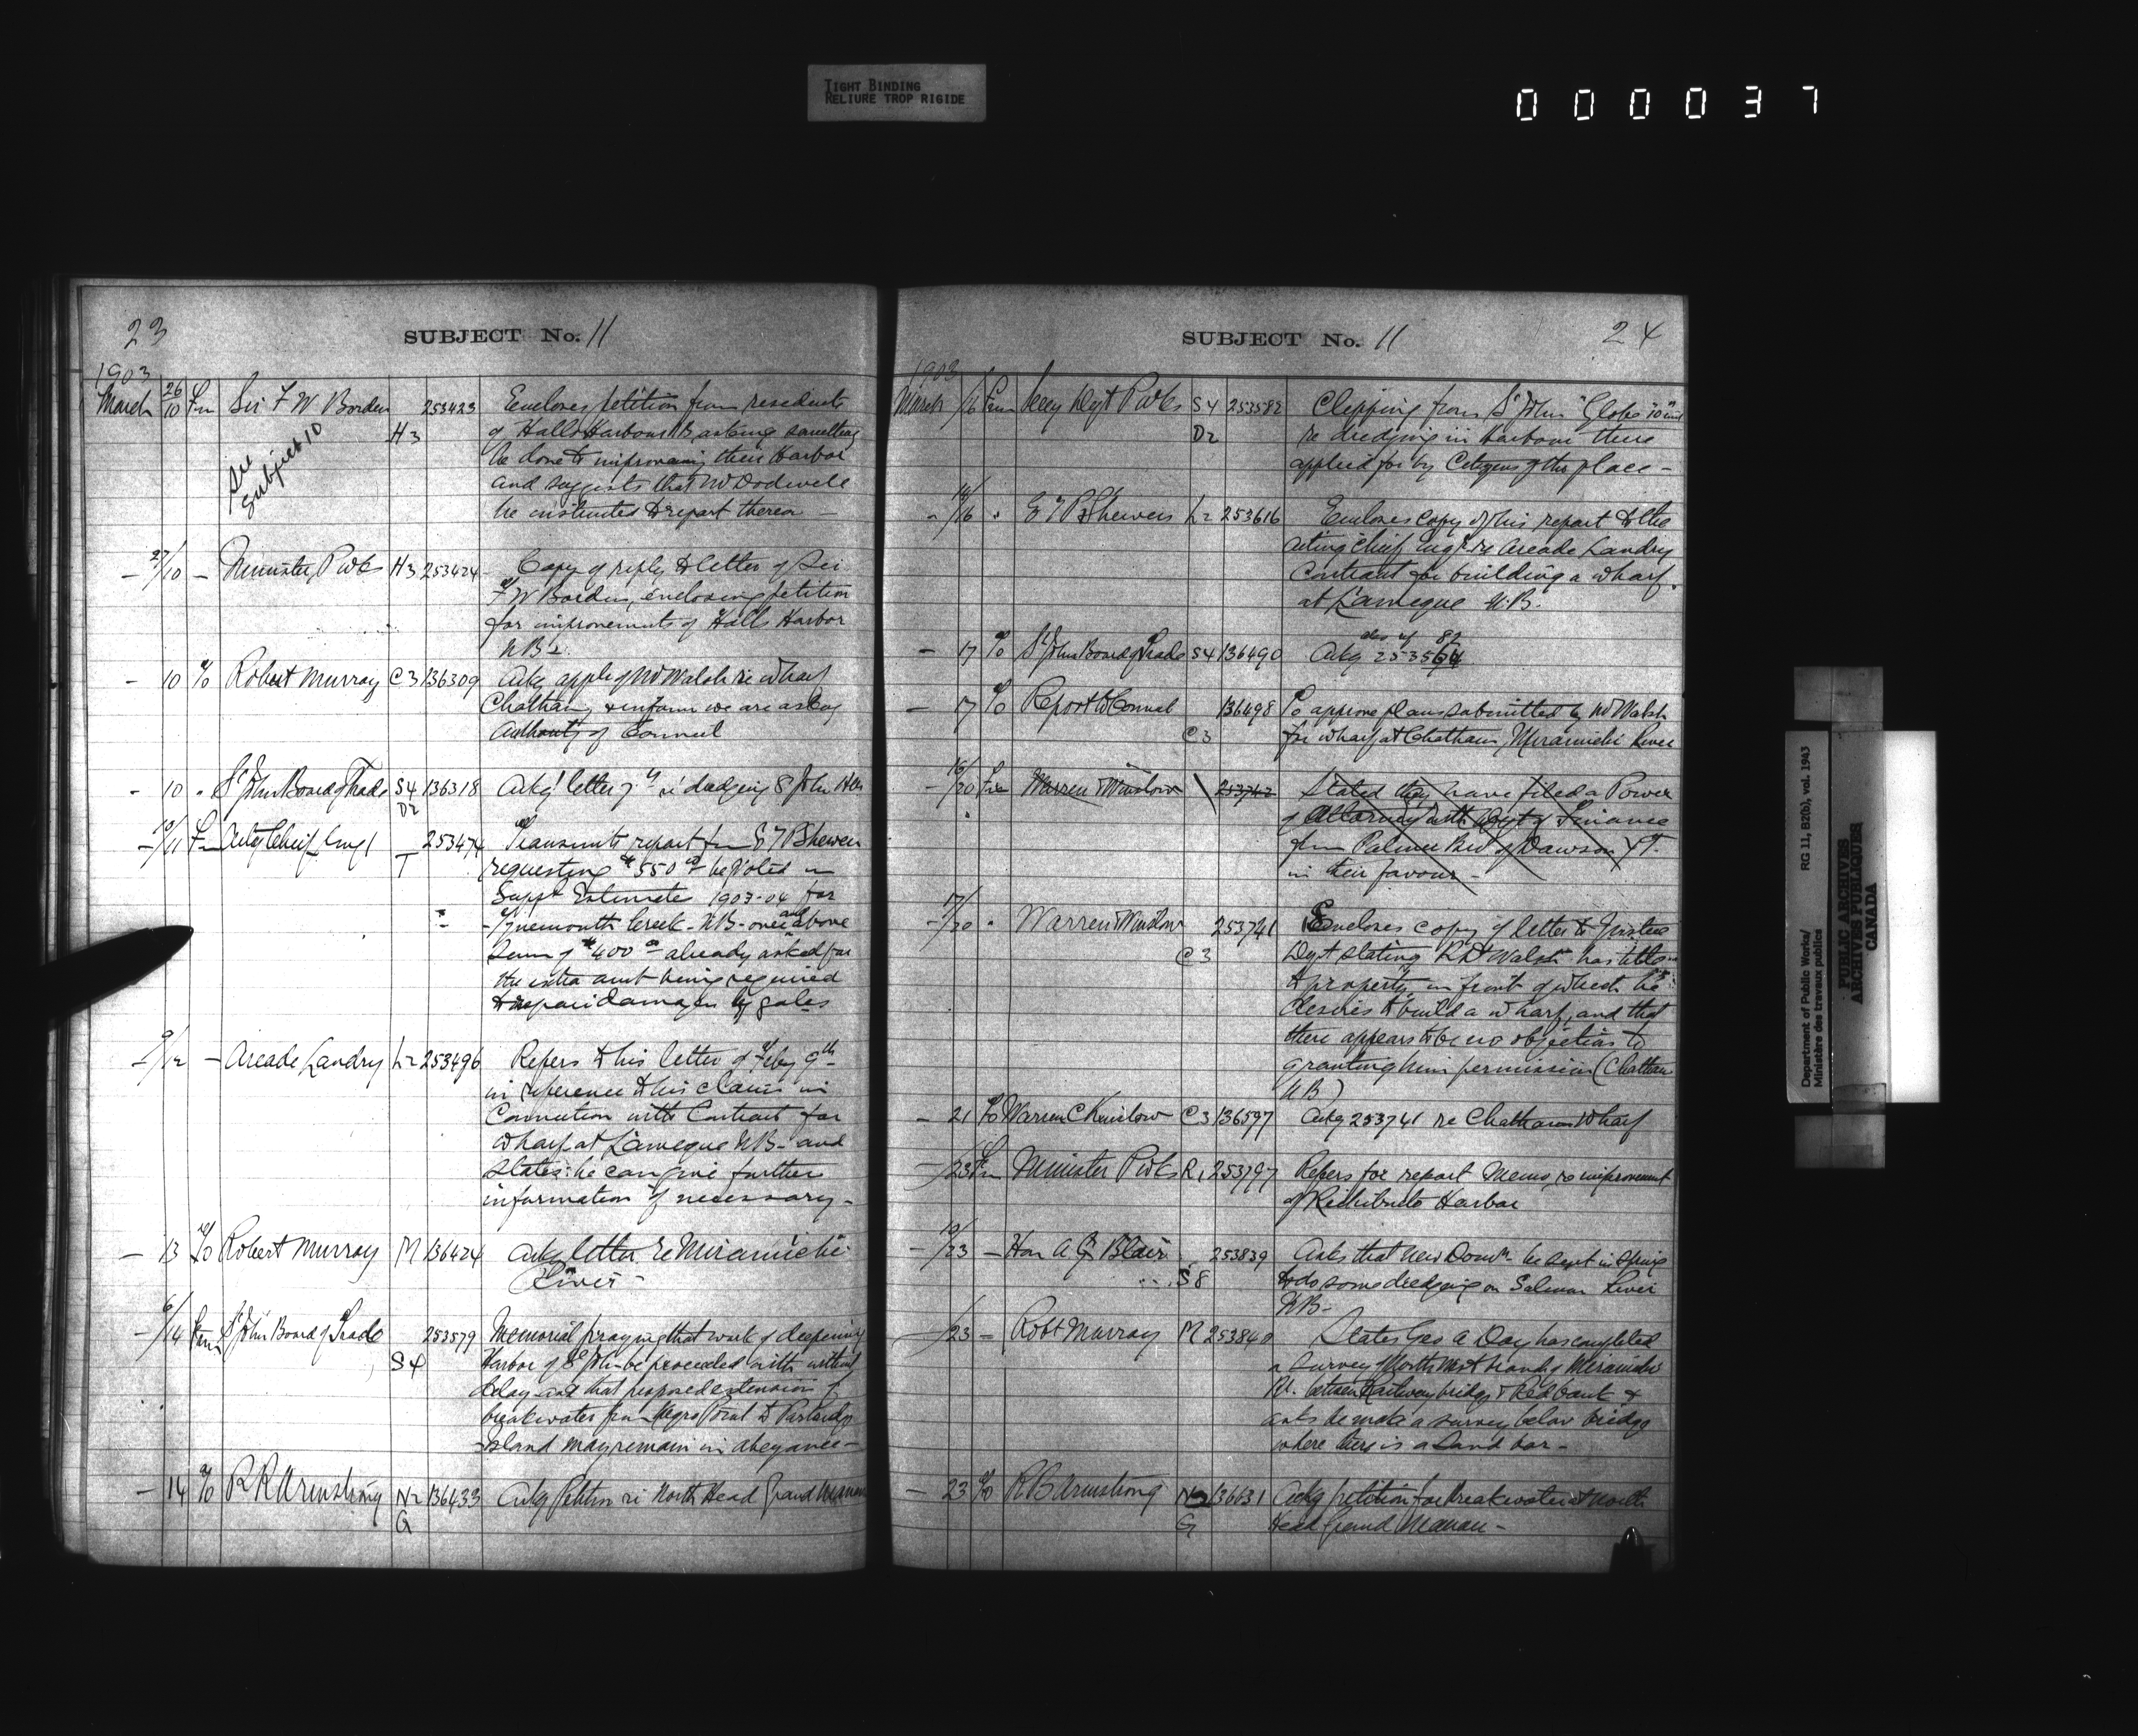 TIGHT BINDING
RELIURE TROP RIGIDE
000037
23
SUBJECT No. 11
1903
March 26/10 Fm Sir F W Borden H3 253423 Encloses petition from residents
of Halls Harbour asking something
be done to improving their Harbor
and suggests that Mr Dodwell
be instructed to report thereon
See
Subject 10
— 27/10 — Minister P Wks H3 253424 Copy of reply to letter of Sir
F W Borden, enclosing petition
for improvements of Halls Harbor
NB
— 10 To Robert Murray C3 136309 Ackg appln of Mr Walsh re wharf
Chatham, & inform we are asking
Authority of Council
— 10 " St John Board of Trade S4 D2 136318 Ackg letter 7th re dredging St John Har
— 10/11 Fm Actg Chief Engr T 253474 Transmits report fm E T P Shewen
requesting $550 00 be voted in
Suppl Estimate 1903-04 for
Tynemouth Creek NB over and above
Sum of $400 00 already asked for
the extra amt being required
to repair damages by gales
— 9/12 — Arcade Landry L2 253496 Refers to his letter of Feby 9th
in reference to his claim in
Connection with Contract for
wharf at Lameque NB and
states he can give further
information if necessary.
— 13 To Robert Murray M 136424 Ackg letter re Miramichi
River
— 6/14 Fm St John Board of Trade S4 253579 Memorial praying that work of deepening
Harbor of St John be proceeded with without
delay and that proposed extension of
breakwater fm Negro Point to Partridge
Island may remain in abeyance
— 14 To R R Armstrong N2 G 136433 Ackg Petition re North Head Grand Manan
SUBJECT No. 11
24
1903
March /16 Fm Secy Dept P Wks S4 D2 253582 Clipping from St John "Globe" 10 inst
re dredging in Harbour there
applied for by Citizens of the place —
— 14/16 " E T P Shewen L2 253616 Encloses copy of his report to the
acting Chief Engr re Arcade Landry
Contract for building a wharf
at Lameque N.B.
— 17 To St John Board of Trade S4 136490 Ackg 253564
also of 82
— 17 To Report to Council C3 136498 To approve plans submitted by Mr Walsh
for wharf at Chatham, Miramichi River
— 16/20 Fm Warren & Winslow 253742 Stated they have filed a Power
of Attorney with Dept of Finance
from Palmer Bro of Dawson Y.T.
in their favour —
— 17/20 " Warren & Winslow C3 253741 Encloses copy of letter to Justice
Dept stating R D Walsh has title
to property in front of which he
desires to build a wharf, and that
there appears to be no objection to
granting him permission (Chatham
NB)
— 21 To Warren C Winslow C3 136597 Ackg 253741 re Chatham Wharf
— 23 Fm Minister P Wks R1 253797 Refers for report Memo, re improvement
of Richibucto Harbor
— 19/23 — Hon A G Blair S8 253839 Asks that New Domn be sent in Spring
to do some dredging on Salmon River
NB —
— /23 — Robt Murray M 253840 States Geo A Day has completed
a survey of North West branch of Miramichi
Rr. between Railway bridge & Redbank &
asks he make a survey below bridge
where there is a Sand bar —
— 23 To R B Armstrong N2 G 136631 Ackg petition for breakwater at North
Head Grand Manan —
Department of Public Works/
Ministère des travaux publics
RG 11, B2(b), vol. 1943
PUBLIC ARCHIVES
ARCHIVES PUBLIQUES
CANADA